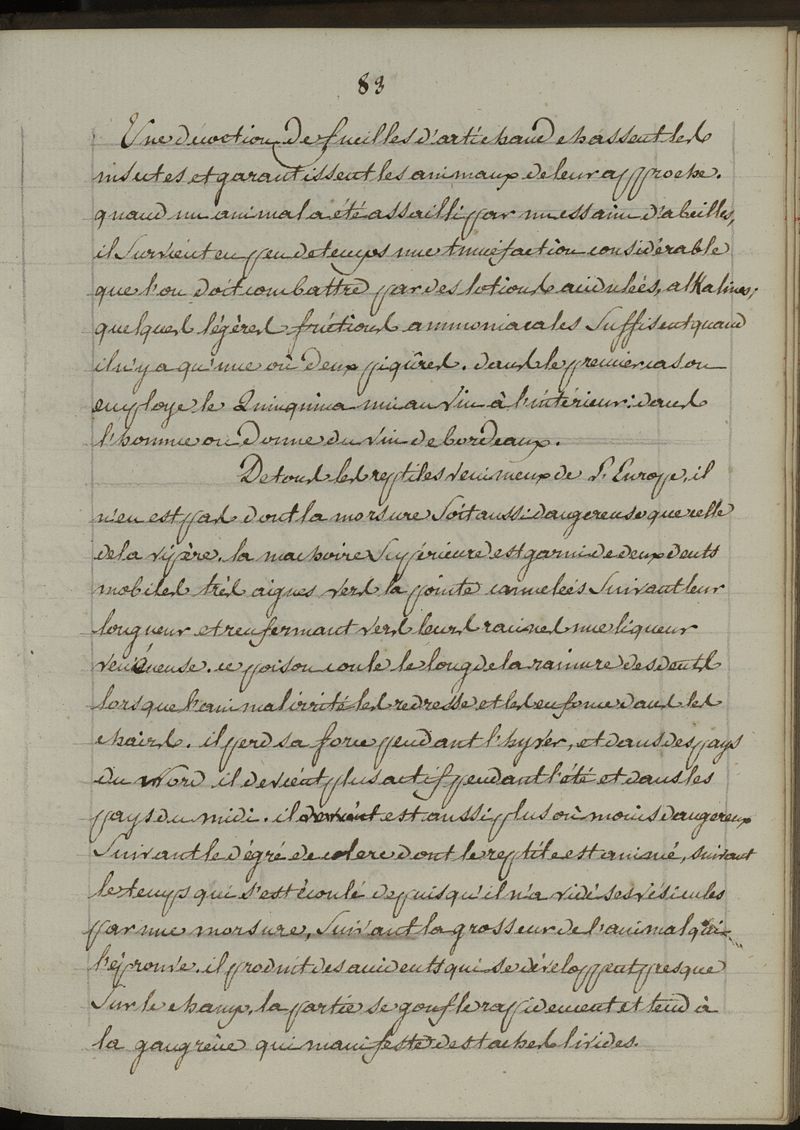 83
Une décoction de feuilles d'artichaud chassent les
insectes et garantissent les animaux de leur approche.
quand un animal a été assailli par un essaim d'abeilles,
il survient en peu de temps une tumefaction considérable
que l'on doit combattre par des lotions acidulées, alkalines;
quelques légères frictions ammoniacales suffisent quand
il n'y a qu'une où deux piqûres. dans le premier cas on
employe le Quinquina uni au vin à l'intérieur: dans
l'homme on donne du vin de bordeaux.
De tous les reptiles venimeux de l'Europe, il
n'en est pas dont la morsure soit aussi dangereuse que celle
de la vipère. la machoire supérieure est garnie de deux dents
mobiles très aigues vers la pointe cannelées suivant leur
longueur et renfermant vers leurs racines une liqueur
venéneuse. ce poison coule le long de la rainure des dents
lorsque l'animal irrité les redresse et les enfonce dans les
chairs. il perd sa force pendant l'hyver, et dans des pays
du Nord il devient plus actif pendant l'été et dans les
pays du midi. il devient est aussi plus où moins dangereux
suivant le dégré de colere dont le reptile est animé, suivant
le temps qui s'est écoulé depuis qu'il n'a vidé ses vésicules
par une morsure, suivant la grosseur de l'animal qui
l'éprouve. il produit des accidents qui se développent presque
sur le champ. la partie se gonfle rapidement et tend à
la gangrène qui manifeste des taches livides.